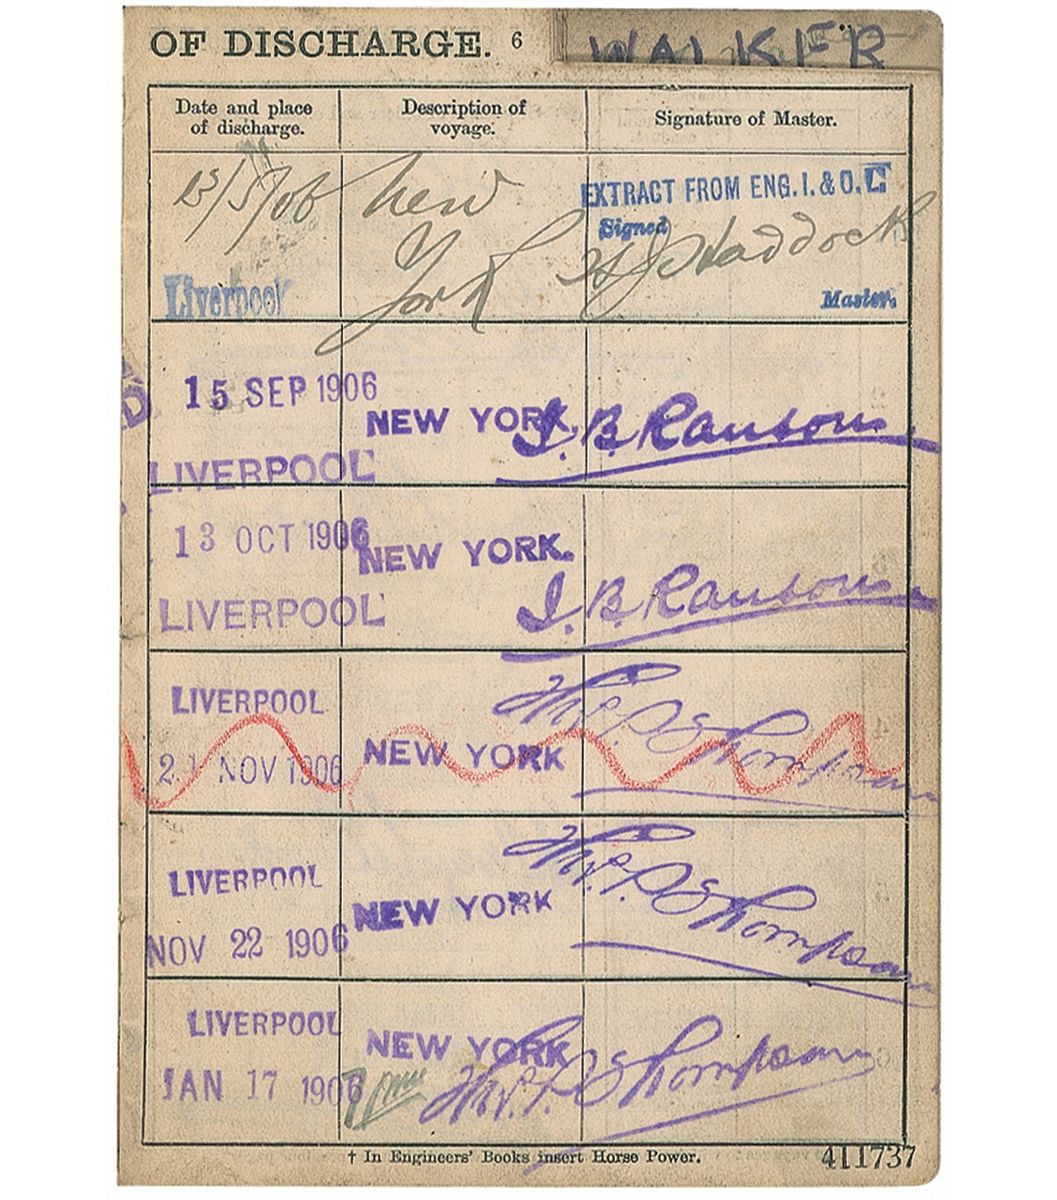 OF DISCHARGE. 6
WALKER
Date and place of discharge.
Description of voyage.
Signature of Master.
13/5/06
New York
EXTRACT FROM ENG. 1. & O.L.
Signed
H J Haddock
Liverpool
Master.
15 SEP 1906
NEW YORK.
J. B. Ransom.
LIVERPOOL
13 OCT 1906
NEW YORK.
J. B. Ransom
LIVERPOOL
LIVERPOOL
21 NOV 1906
NEW YORK
Thos. P. Thompson
LIVERPOOL
NOV 22 1906
NEW YORK
Thos. P. Thompson
LIVERPOOL
JAN 17 1906
NEW YORK
Thos. P. Thompson
† In Engineers' Books insert Horse Power.
411737